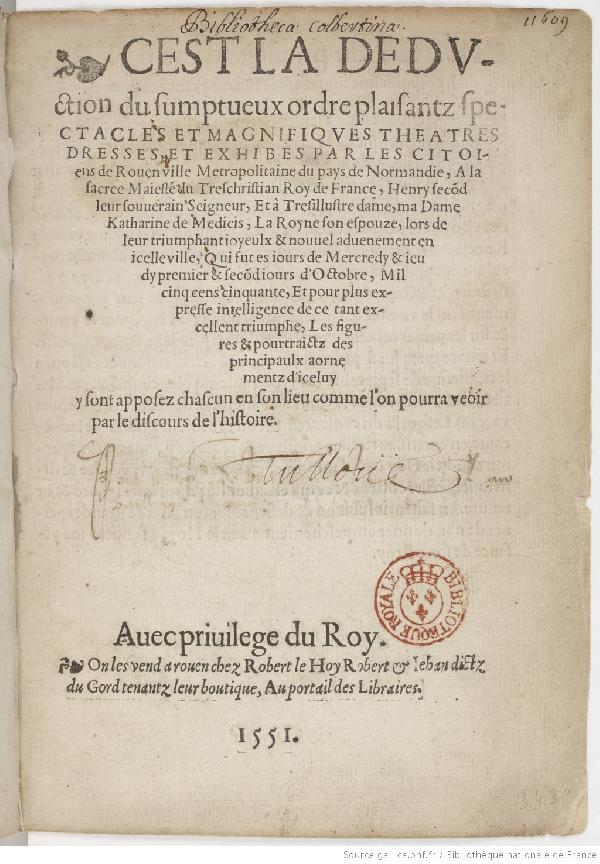 Bibliotheca Colbertina.
11609
CEST LA DEDV-
ction du sumptueux ordre plaisantz spe-
CTACLES ET MAGNIFIQVES THEATRES
DRESSES, ET EXHIBES PAR LES CITOI-
ens de Rouen ville Metropolitaine du pays de Normandie, A la
sacree Maiesté du Treschristian Roy de France, Henry secõd
leur souuerain Seigneur, Et à Tresillustre dame, ma Dame
Katharine de Medicis, La Royne son espouze, lors de
leur triumphant ioyeulx & nouuel aduenement en
icelle ville, Qui fut es iours de Mercredy & ieu
dy premier & secõd iours d'Octobre, Mil
cinq cens cinquante, Et pour plus ex-
presse intelligence de ce tant ex-
cellent triumphe, Les figu-
res & pourtraictz des
principaulx aorne
mentz d'iceluy
y sont apposez chascun en son lieu comme l'on pourra veoir
par le discours de l'histoire.
BIBLIOTEQUE ROYALE
Auec priuilege du Roy.
On les vend a rouen chez Robert le Hoy Robert & Iehan dictz
du Gord tenantz leur boutique, Au portail des Libraires.
1551.
Source gallica.bnf.fr / Bibliothèque nationale de France